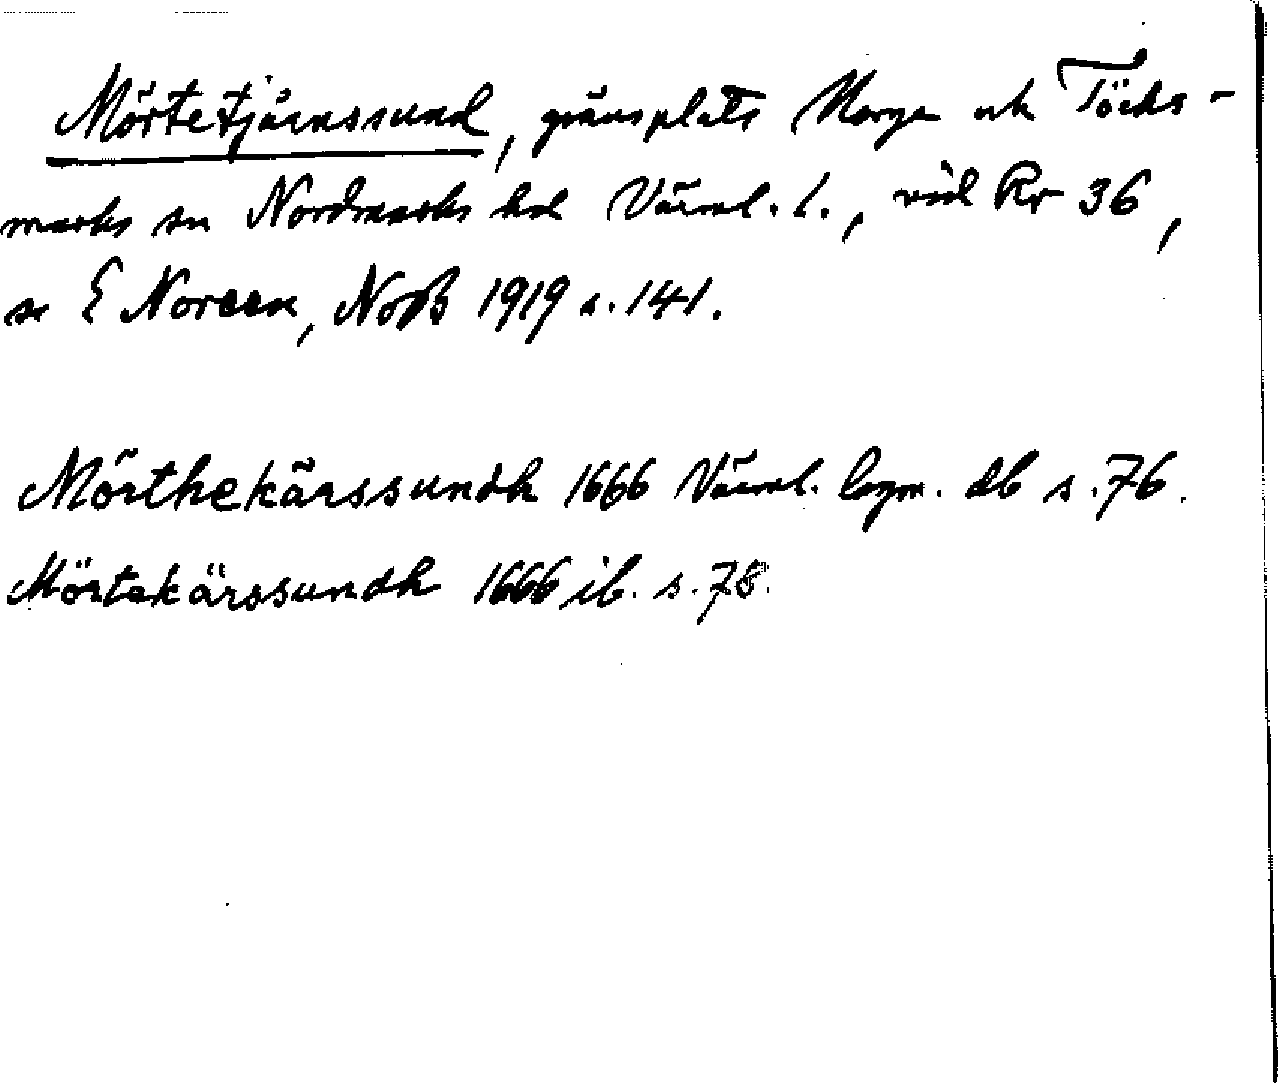 Mörtetjärnssund, gränsplats Norge och Töcks-
marks sn Nordmarks hd Värml. l., vid Rr 36,
se E Noreen, NoB 1919 s. 141.
Mörthekärssundh 1666 Värml. lagm. db s. 76.
Mörtekärssundh 1666 ib. s. 78.